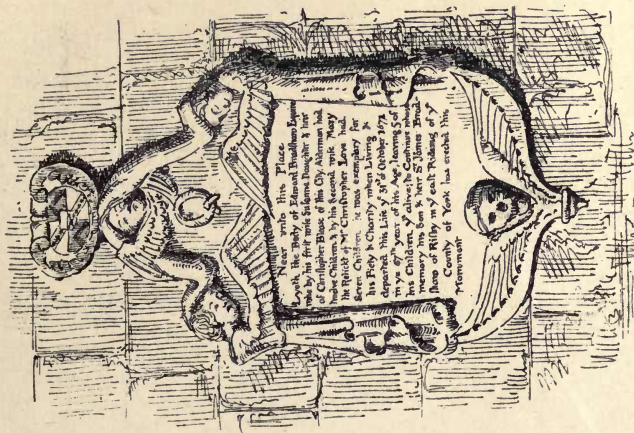 Near unto this Place
Lyeth the Body of Edmond Bradshaw Esquire
who by his first wife Suzanna Daughter & heir
of Christopher Blease of this City Alderman had
twelve Children & by his Second wife Mary
the Relickt of Mr Christopher Love had
Seven Children he was exemplary for
his Piety & Charity when Living &
departed this Life ye 31 of October 1672
in ye 61 year of his Age leaving 5 of
his Children alive to Continue whose
memory his Son & heir Sr James Brad-
shaw of Risby in ye east Rideing of ye
County of York has erected this
Monument